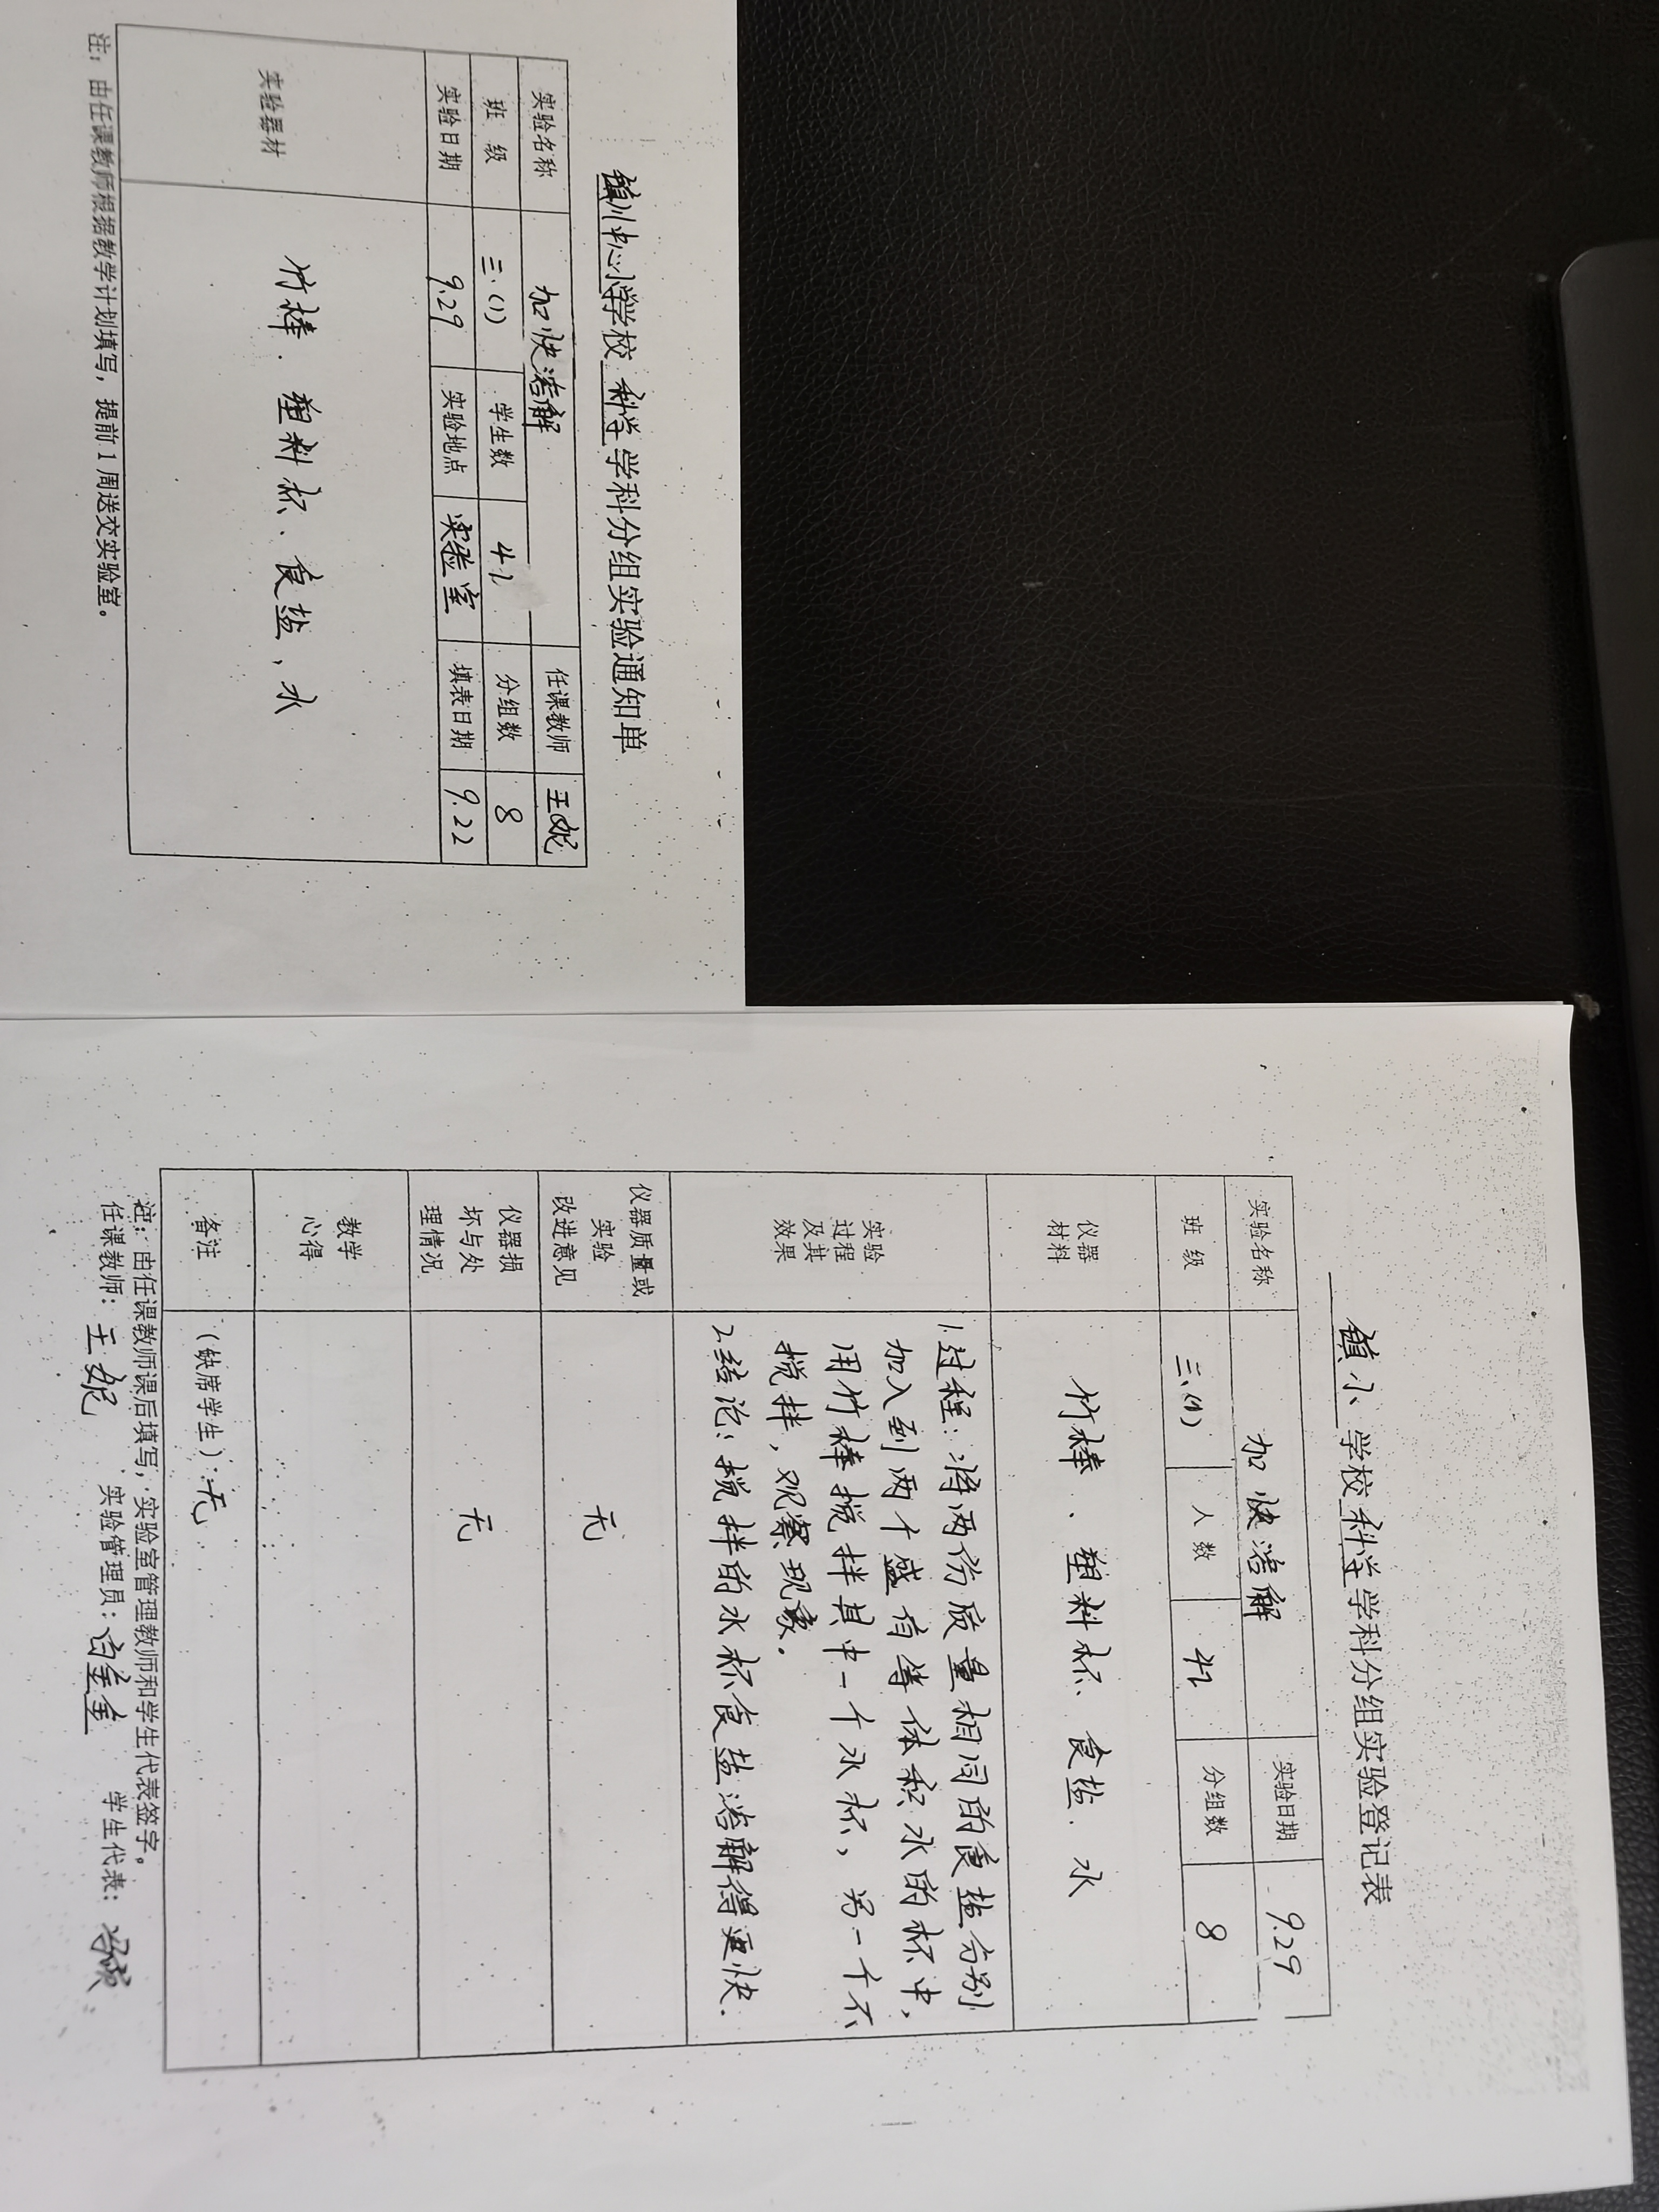 镇川中心小学学校 科学 学科分组实验通知单
实验名称 加快溶解 任课教师 王妮
班 级 三.(1) 学生数 42 分组数 8
实验日期 9.29 实验地点 实验室 填表日期 9.22
实验器材 竹棒、塑料杯、食盐、水
注：由任课教师根据教学计划填写，提前1周送交实验室。
镇小 学校 科学 学科分组实验登记表
实验名称 加快溶解 实验日期 9.29
班 级 三.(1) 人 数 42 分组数 8
仪器
材料
竹棒、塑料杯、食盐、水
实验
过程
及其
效果
1.过程：将两份质量相同的食盐分别
加入到两个盛有等体积水的杯中，
用竹棒搅拌其中一个水杯，另一个不
搅拌，观察现象。
2.结论：搅拌的水杯食盐溶解得更快.
仪器质量或
实验
改进意见
无
仪器损
坏与处
理情况
无
教学
心得
备注 （缺席学生）无
注：由任课教师课后填写，实验室管理教师和学生代表签字。
任课教师：王妮 实验管理员： 学生代表：